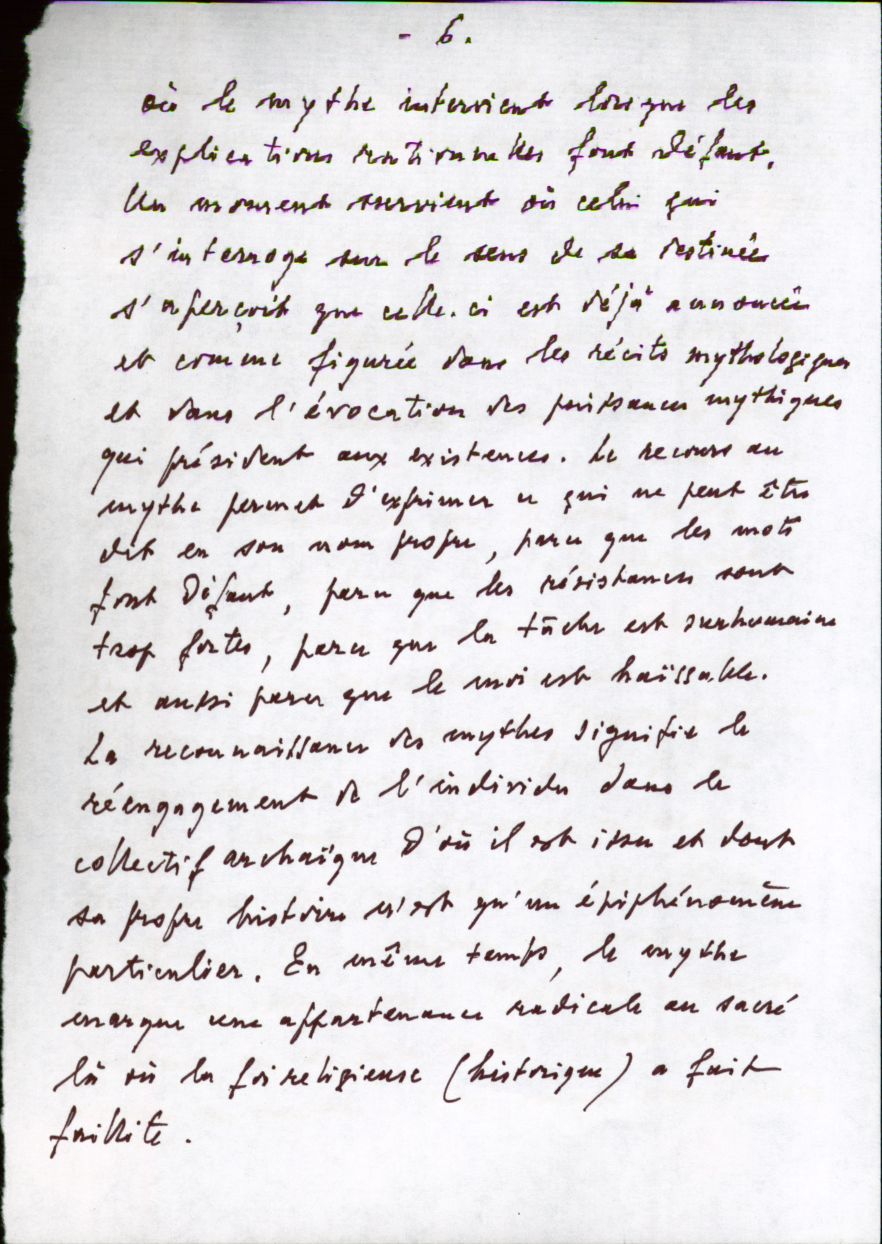 - 6.
où le mythe intervient lorsque les
explications rationnelles font défaut.
Un moment survient où celui qui
s'interroge sur le sens de sa destinée
s'aperçoit que celle-ci est déjà annoncée
et comme figurée dans les récits mythologiques
et dans l'évocation des puissances mythiques
qui président aux existences. Le recours au
mythe permet d'exprimer ce qui ne peut être
dit en son nom propre, parce que les mots
font défaut, parce que les résistances sont
trop fortes, parce que la tâche est surhumaine
et aussi parce que le moi est haïssable.
La reconnaissance des mythes signifie le
réengagement de l'individu dans le
collectif archaïque d'où il est issu et dont
sa propre histoire n'est qu'un épiphénomène
particulier. En même temps, le mythe
marque une appartenance radicale au sacré
là où la foi religieuse (historique) a fait
faillite.